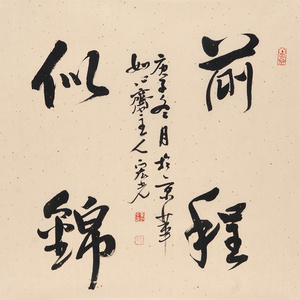 前程
似錦
庚子冬月於京華
如心齋主人宏光